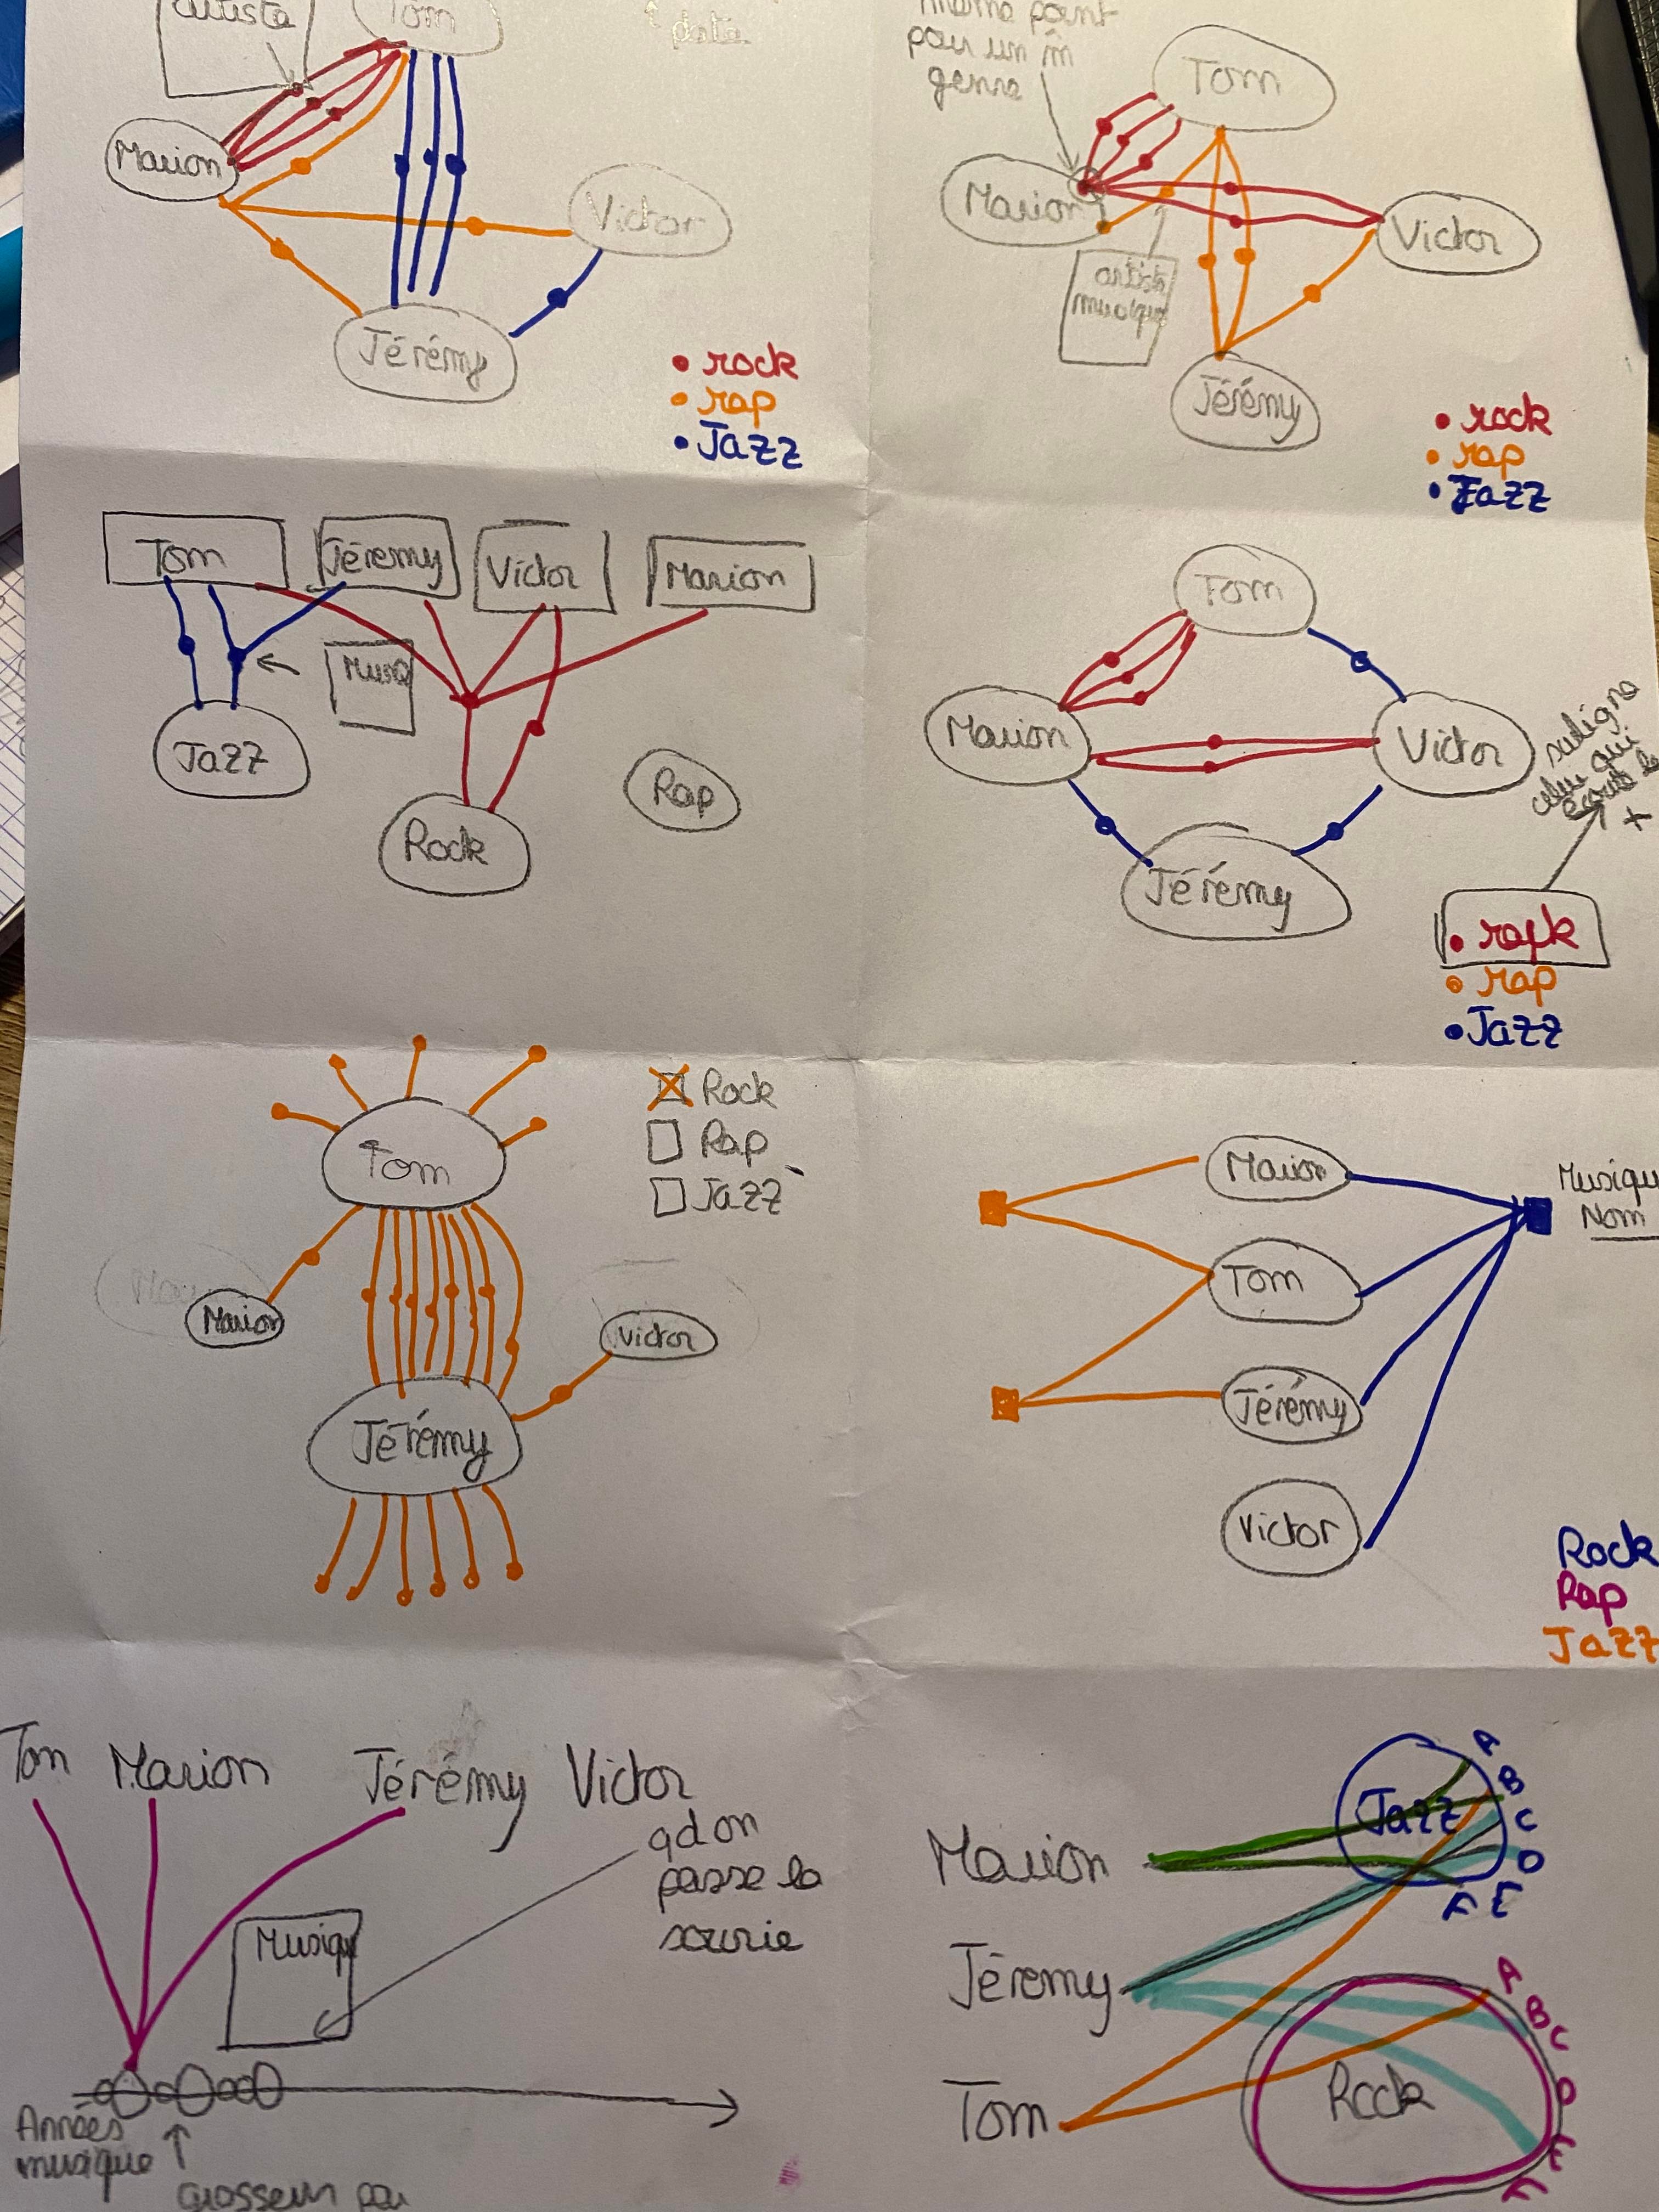 artiste
Tom
data
Marion
Victor
Jérémy
• rock
• rap
• Jazz
même point
pour un m̂
genre
Tom
Marion
Victor
artiste
musique
Jérémy
• rock
• rap
• Jazz
Tom
Jéremy
Victor
Marion
Musiq
Jazz
Rock
Rap
Tom
Marion
Victor
Jérémy
celui qui
écoute le
+
• rock
• rap
• Jazz
Tom
Rock
Rap
Jazz
Marion
Victor
Jérémy
Marion
Musique
Nom
Tom
Jérémy
Victor
Rock
Rap
Jazz
Tom
Marion
Jérémy
Victor
qd on
passe la
sourie
Musiqu
Années
musique
grosseur par
Jazz
A
B
C
D
E
F
Marion
Jéremy
Tom
Rock
A
B
C
D
E
F